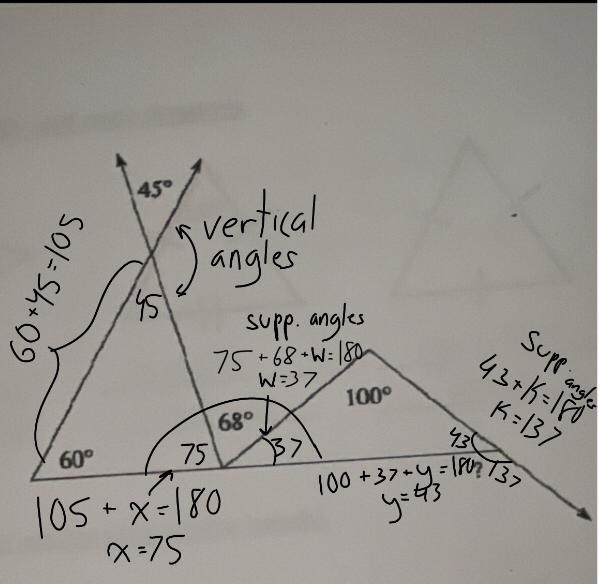 45°
vertical
angles
60+45=105
45
supp. angles
75+68+W=180
W=37
Supp. angles
43+K=180
K=137
100°
68°
43
60°
75
37
137
?
100+37+y=180
y=43
105+x=180
x=75